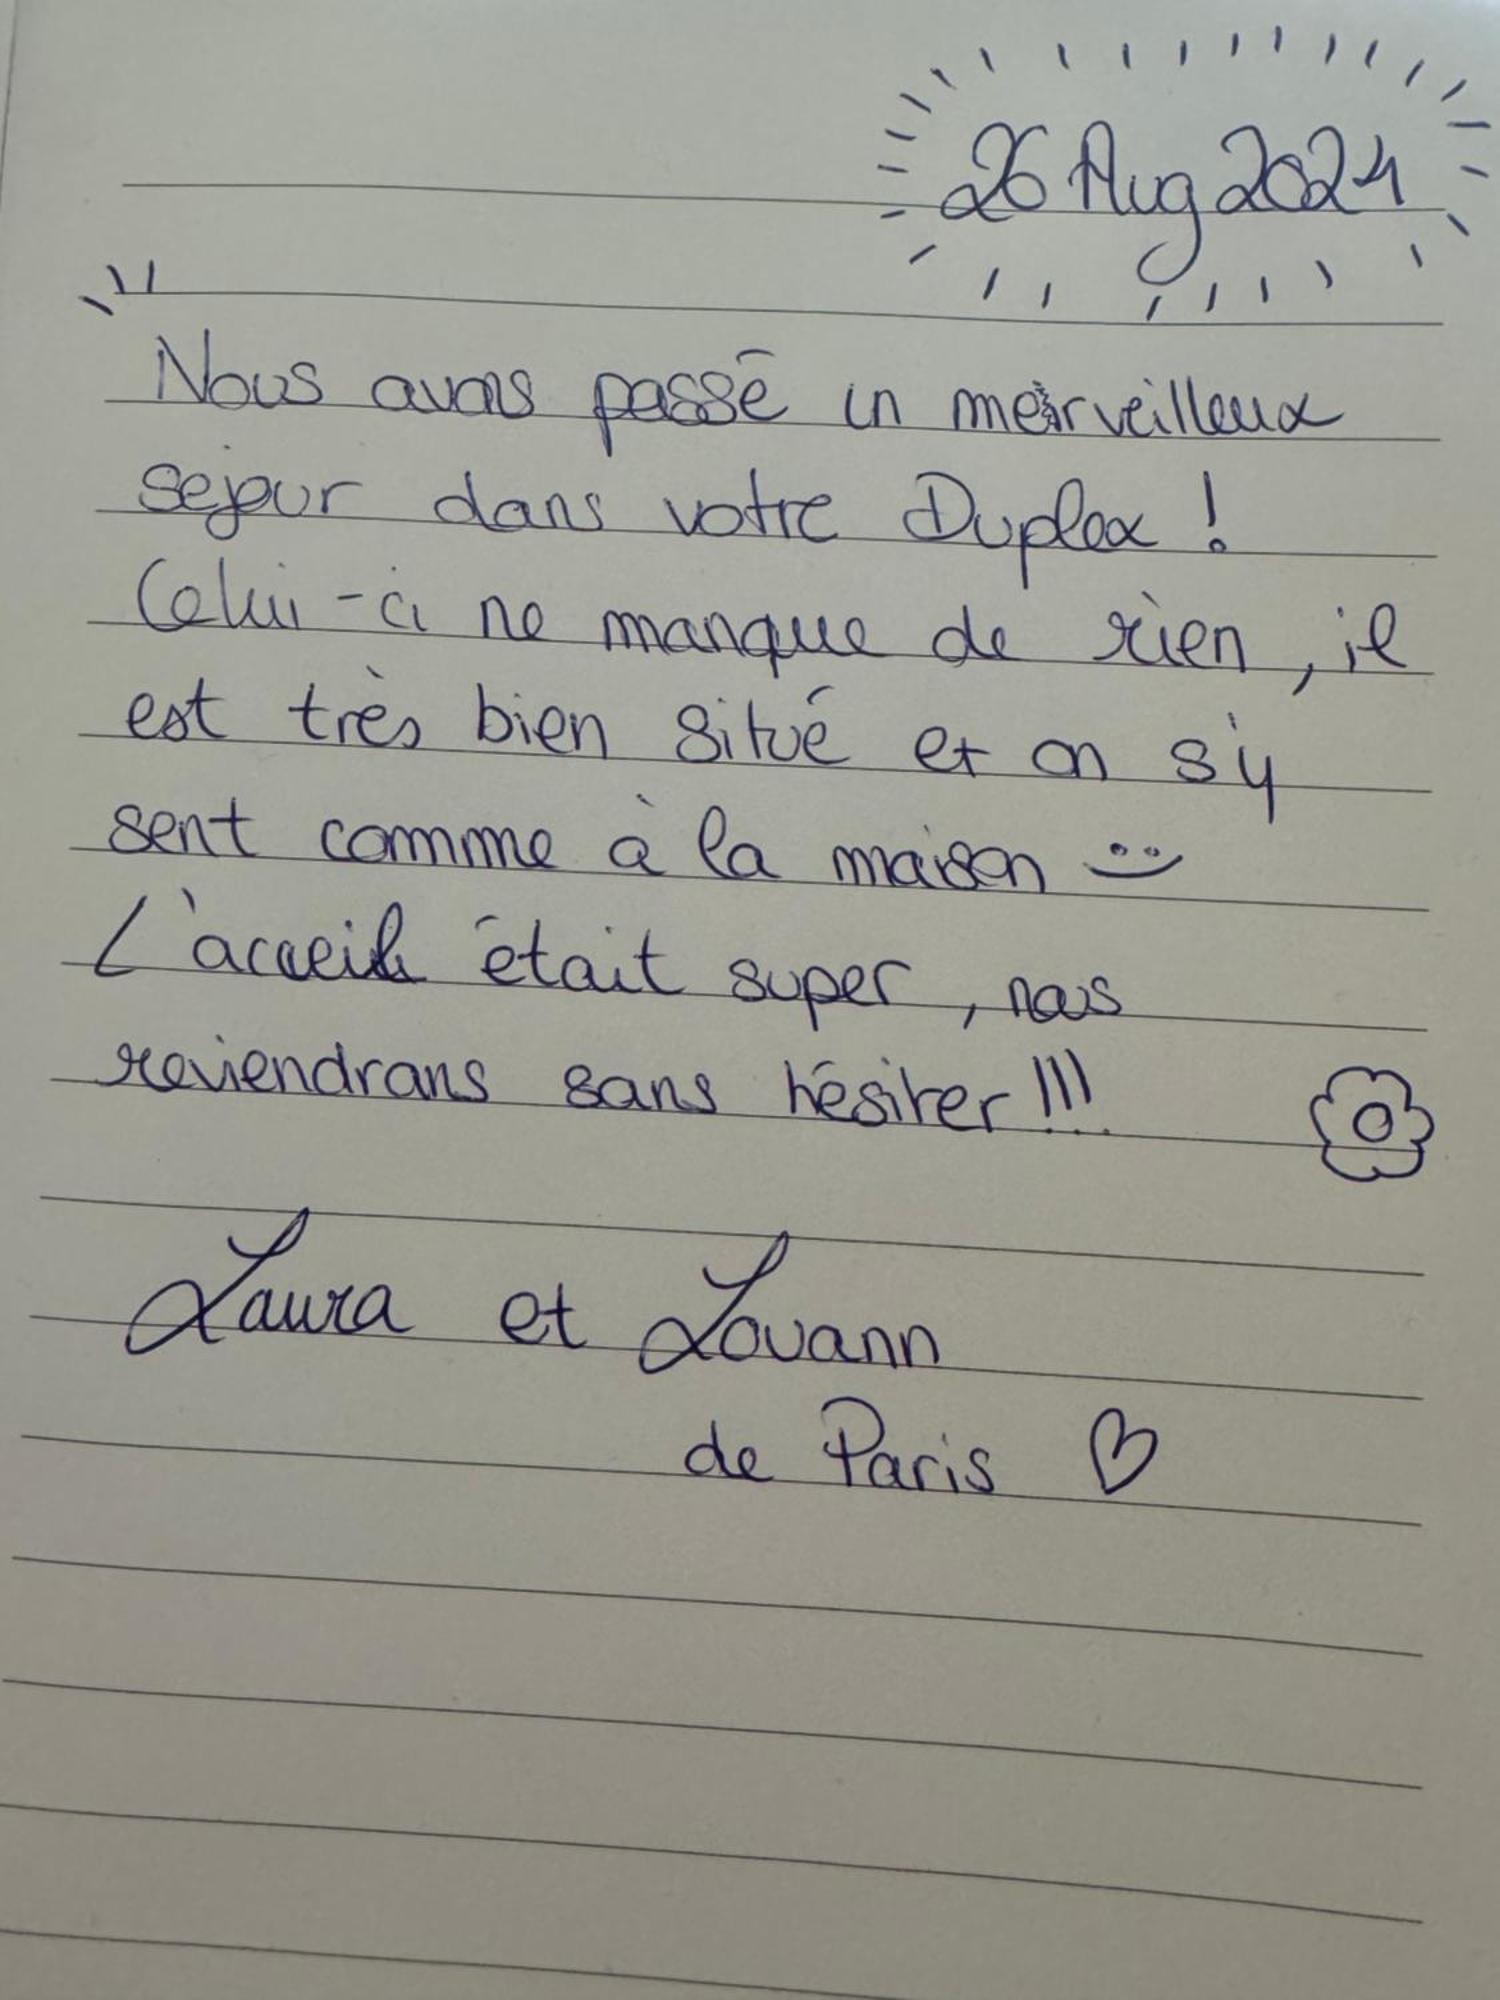 26 Aug 2024
Nous avons passé un merveilleux
sejour dans votre Duplex !
Celui-ci ne manque de rien, il
est très bien situé et on s'y
sent comme à la maison :)
L'accueil était super, nous
reviendrons sans hésiter !!!
Laura et Lovann
de Paris ♡